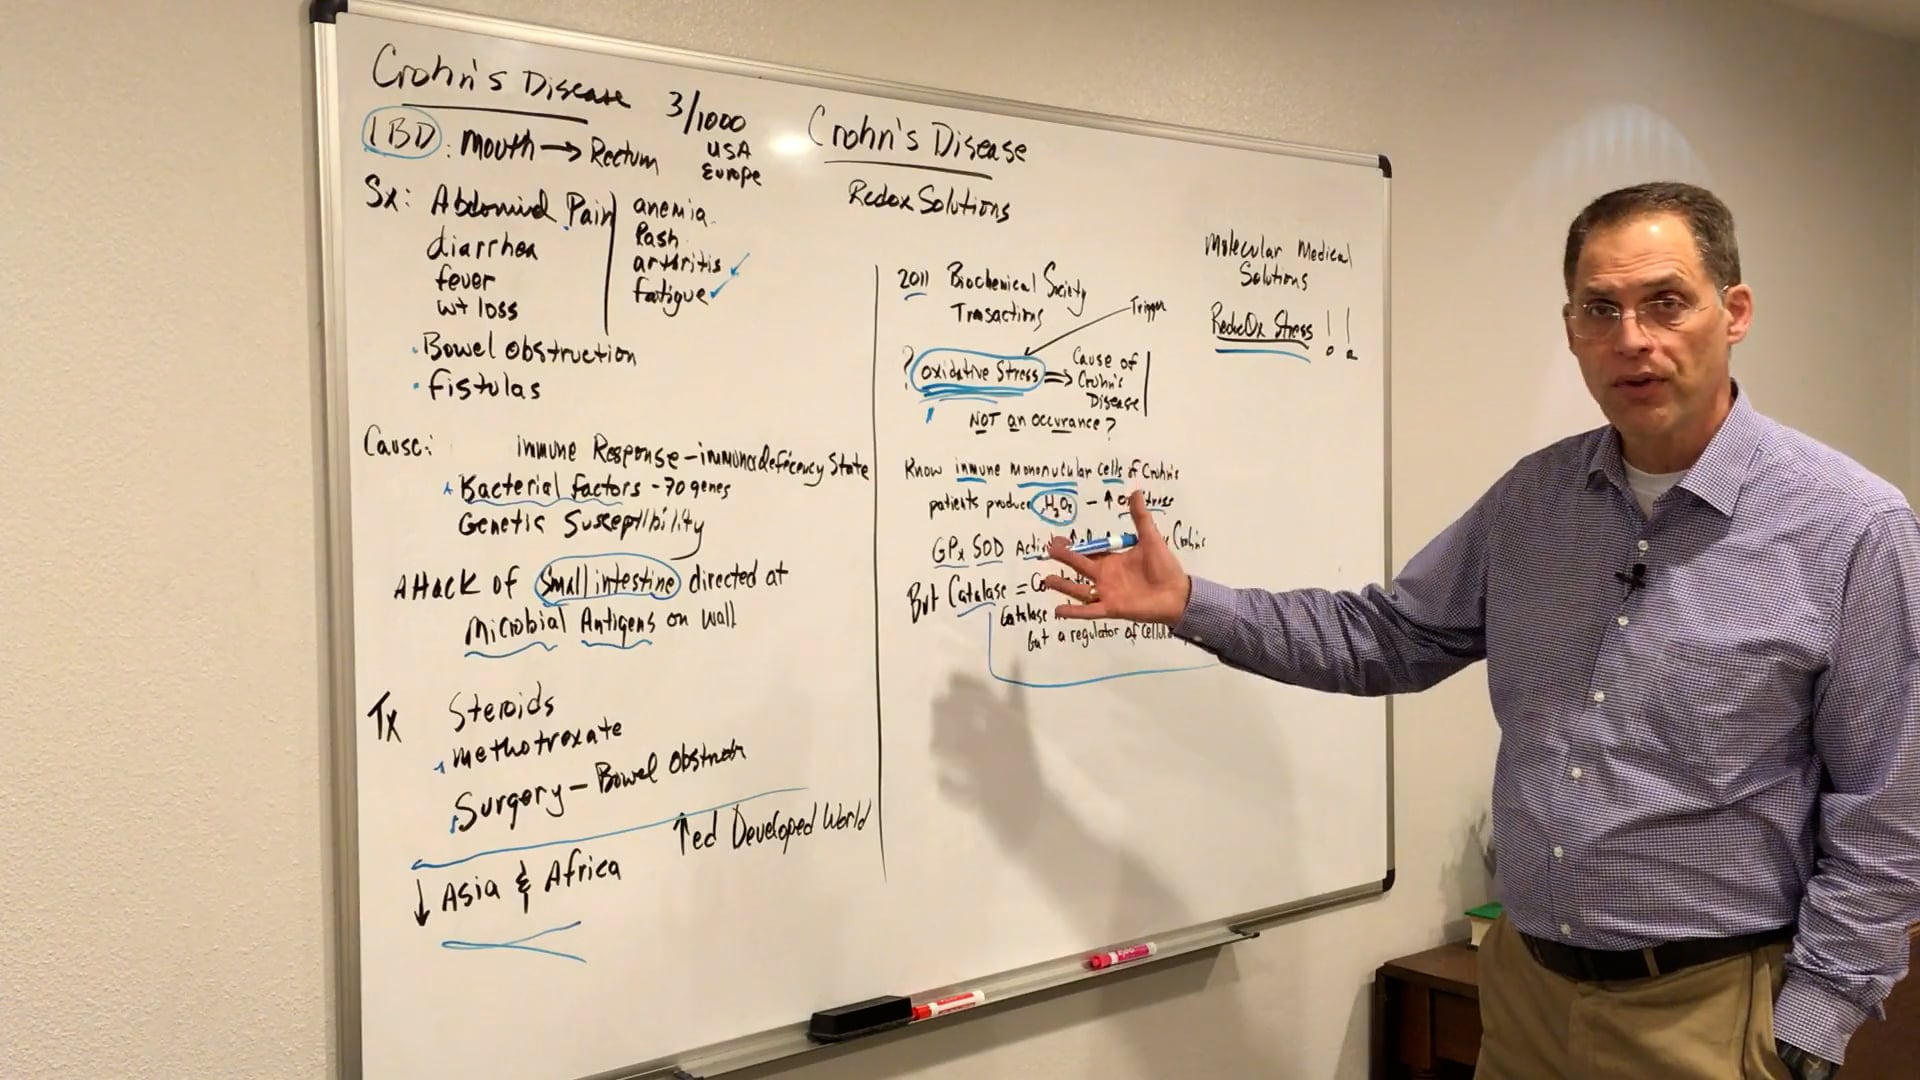 Crohn's Disease
3/1000
USA
Europe
IBD: Mouth → Rectum
Sx: Abdominal Pain
diarrhea
fever
wt loss
anemia
Rash
arthritis
fatigue
Bowel obstruction
fistulas
Cause: immune Response - immunodeficency State
Bacterial factors - 70 genes
Genetic Susceptibility
Attack of Small intestine directed at
Microbial Antigens on wall
Tx Steroids
methotrexate
Surgery - Bowel
↑ed Developed World
↓ Asia & Africa
Crohn's Disease
Redox Solutions
2011 Biochemical Society
Trigger
? oxidative Stress ⇒ Cause of
Crohn's
Disease
NOT an occurance?
Know immune mononuclar cells of Crohn's
patients produce H2O2 - ↑
GPx SOD Crohn's
But Catalase =
Catalase
but a regulator of
Molecular Medical
Solutions
RedOx Stress !!